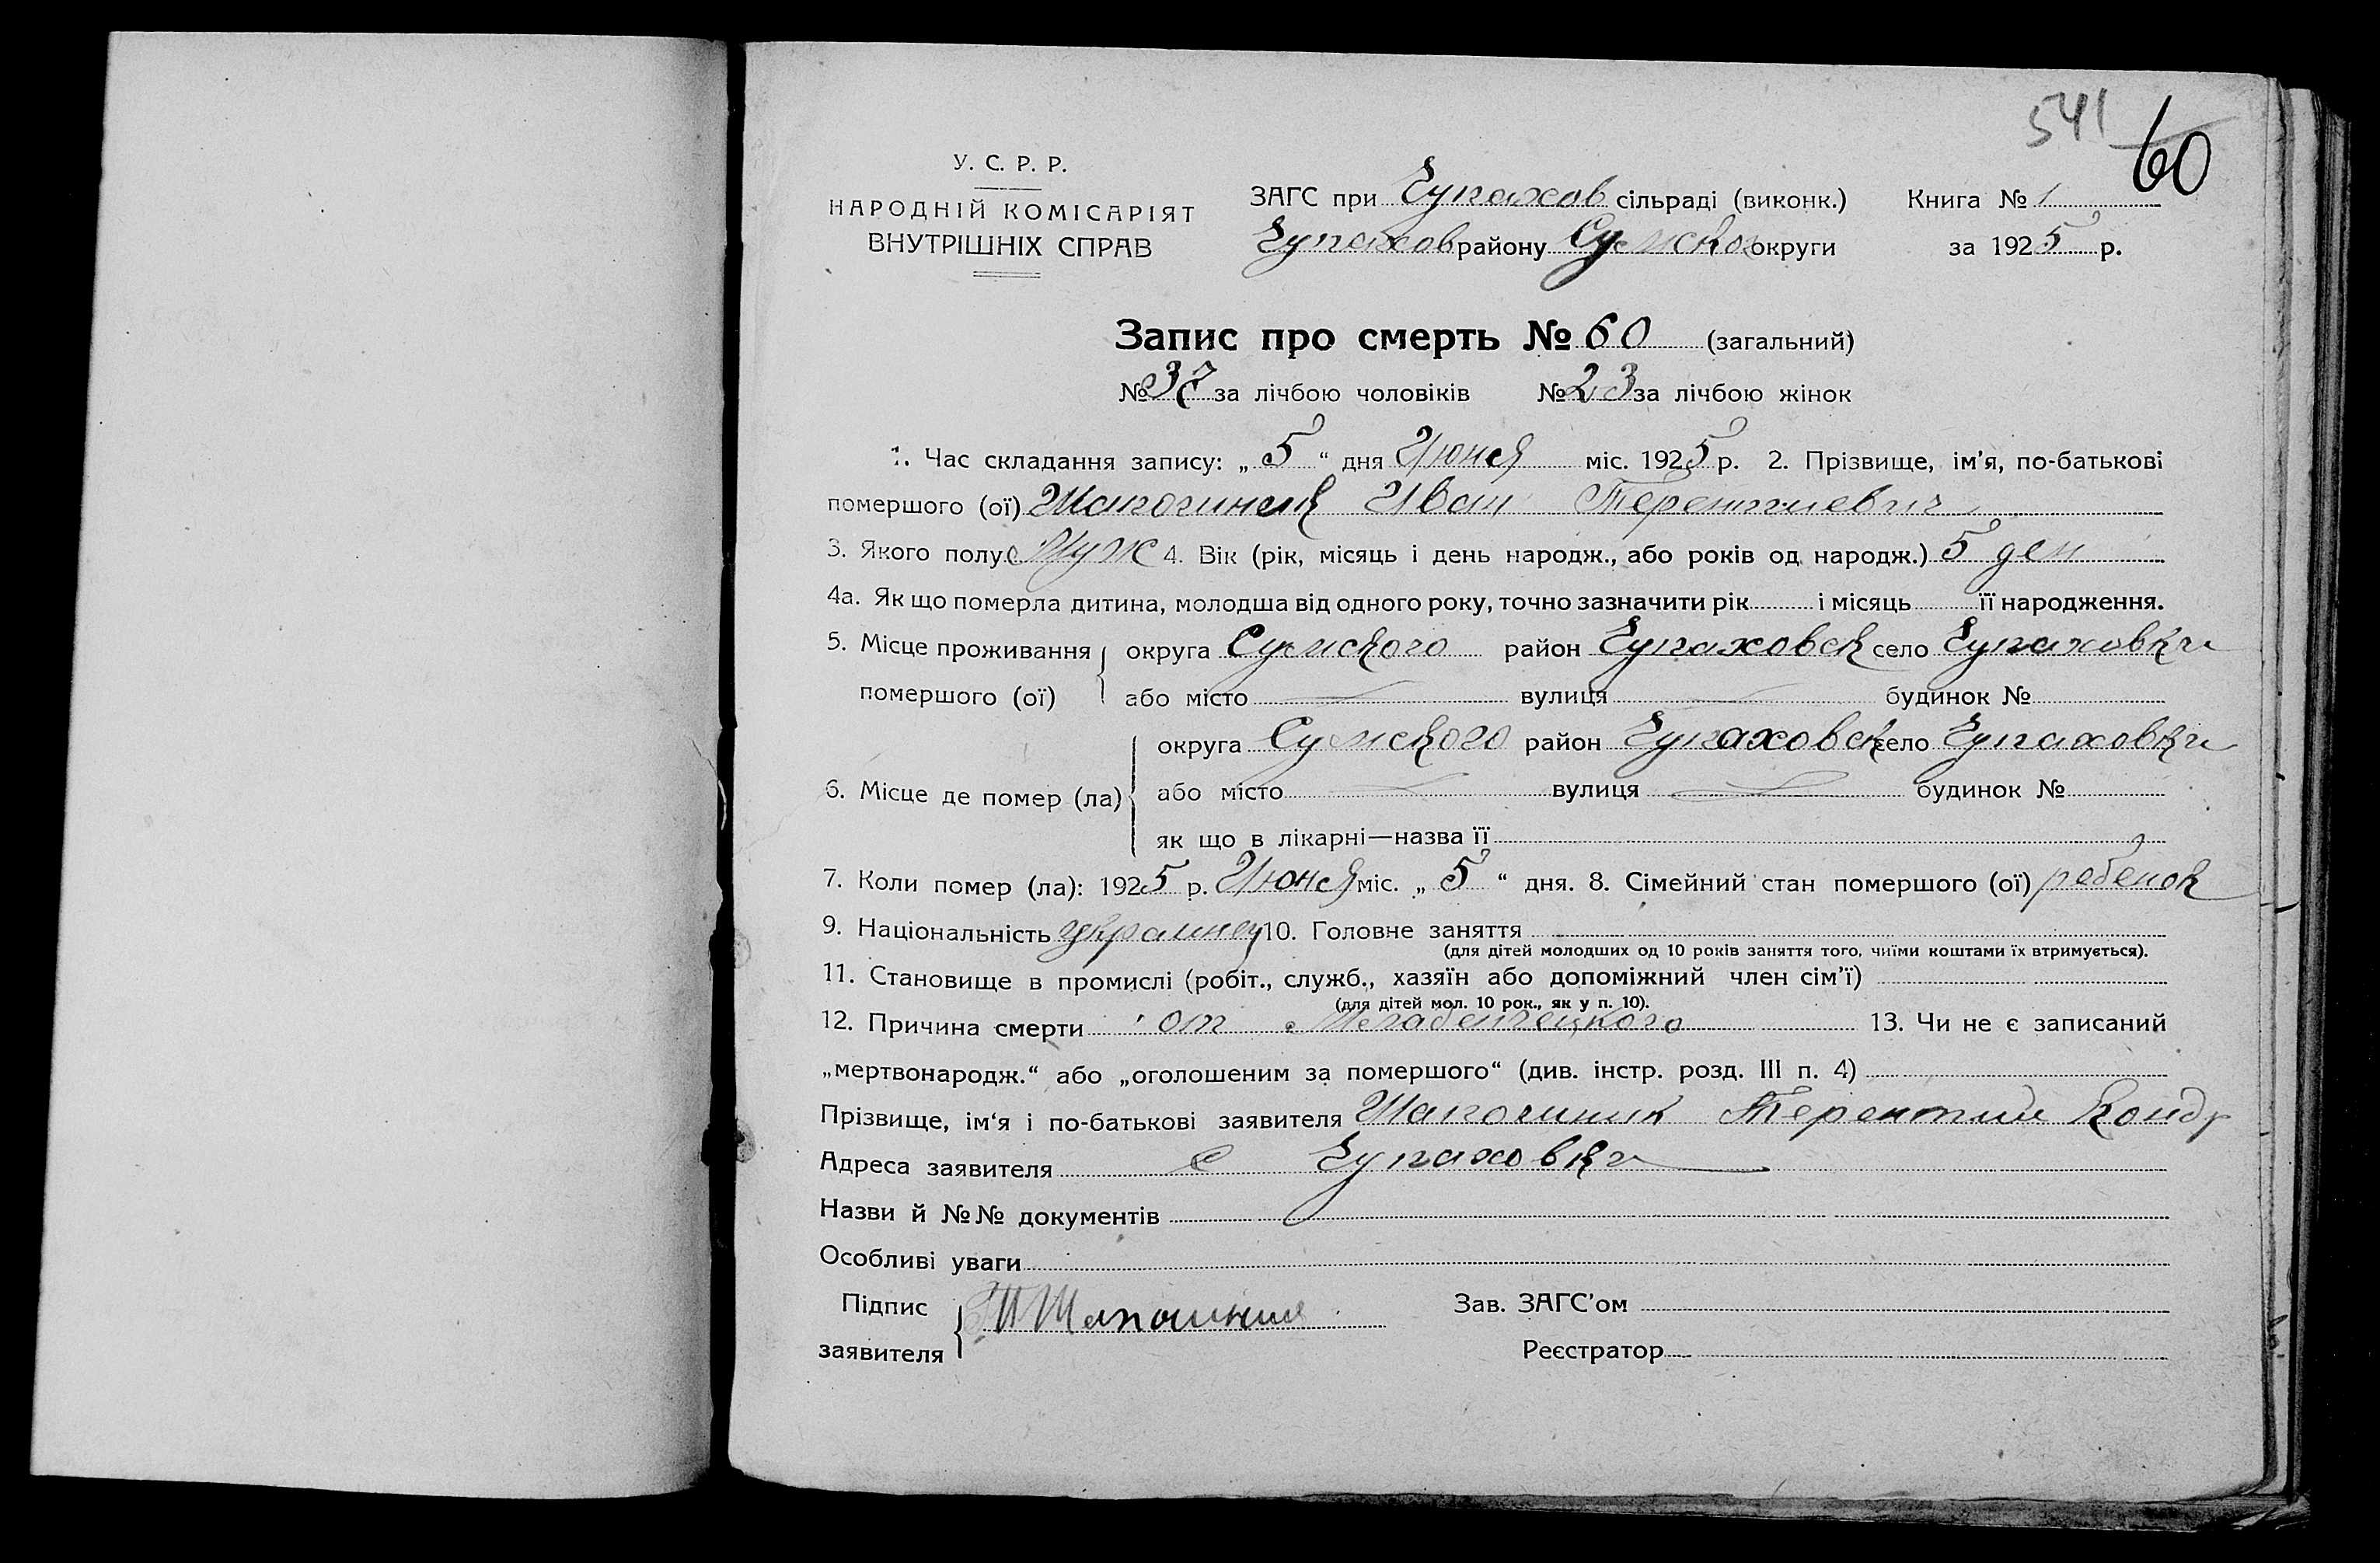 541 60
У. С. Р. Р.
НАРОДНІЙ КОМІСАРІЯТ
ВНУТРІШНІХ СПРАВ
ЗАГС при Чупахов сільраді (виконк.) Книга № 1
Чупахов району Сумског округи за 1925 р.
Запис про смерть № 60 (загальний)
№ 37 за лічбою чоловіків № 23 за лічбою жінок
1. Час складання запису: „ 5 “ дня Июня міс. 1925 р. 2. Прізвище, ім’я, по-батькові
помершого (ої) Иван Терентиевич
3. Якого полу Муж 4. Вік (рік, місяць і день народж., або років од народж.) 5 ден
4а. Як що померла дитина, молодша від одного року, точно зазначити рік і місяць її народження.
5. Місце проживання помершого (ої) округа Сумского район Чупаховск село Чупаховки
або місто вулиця будинок №
6. Місце де помер (ла) округа Сумского район Чупаховск село Чупаховки
або місто вулиця будинок №
як що в лікарні—назва її
7. Коли помер (ла): 1925 р. Июня міс. „ 5 “ дня. 8. Сімейний стан помершого (ої) ребенок
9. Національність украинец 10. Головне заняття
(для дітей молодших од 10 років заняття того, чиїми коштами їх втримується).
11. Становище в промислі (робіт., служб., хазяїн або допоміжний член сім’ї)
(для дітей мол. 10 рок., як у п. 10).
12. Причина смерти от 13. Чи не є записаний
„мертвонародж.“ або „оголошеним за помершого“ (див. інстр. розд. III п. 4)
Прізвище, ім‘я і по-батькові заявителя Терентий Конду
Адреса заявителя с Чупаховки
Назви й №№ документів
Особливі уваги
Підпис заявителя Зав. ЗАГС’ом
Реєстратор